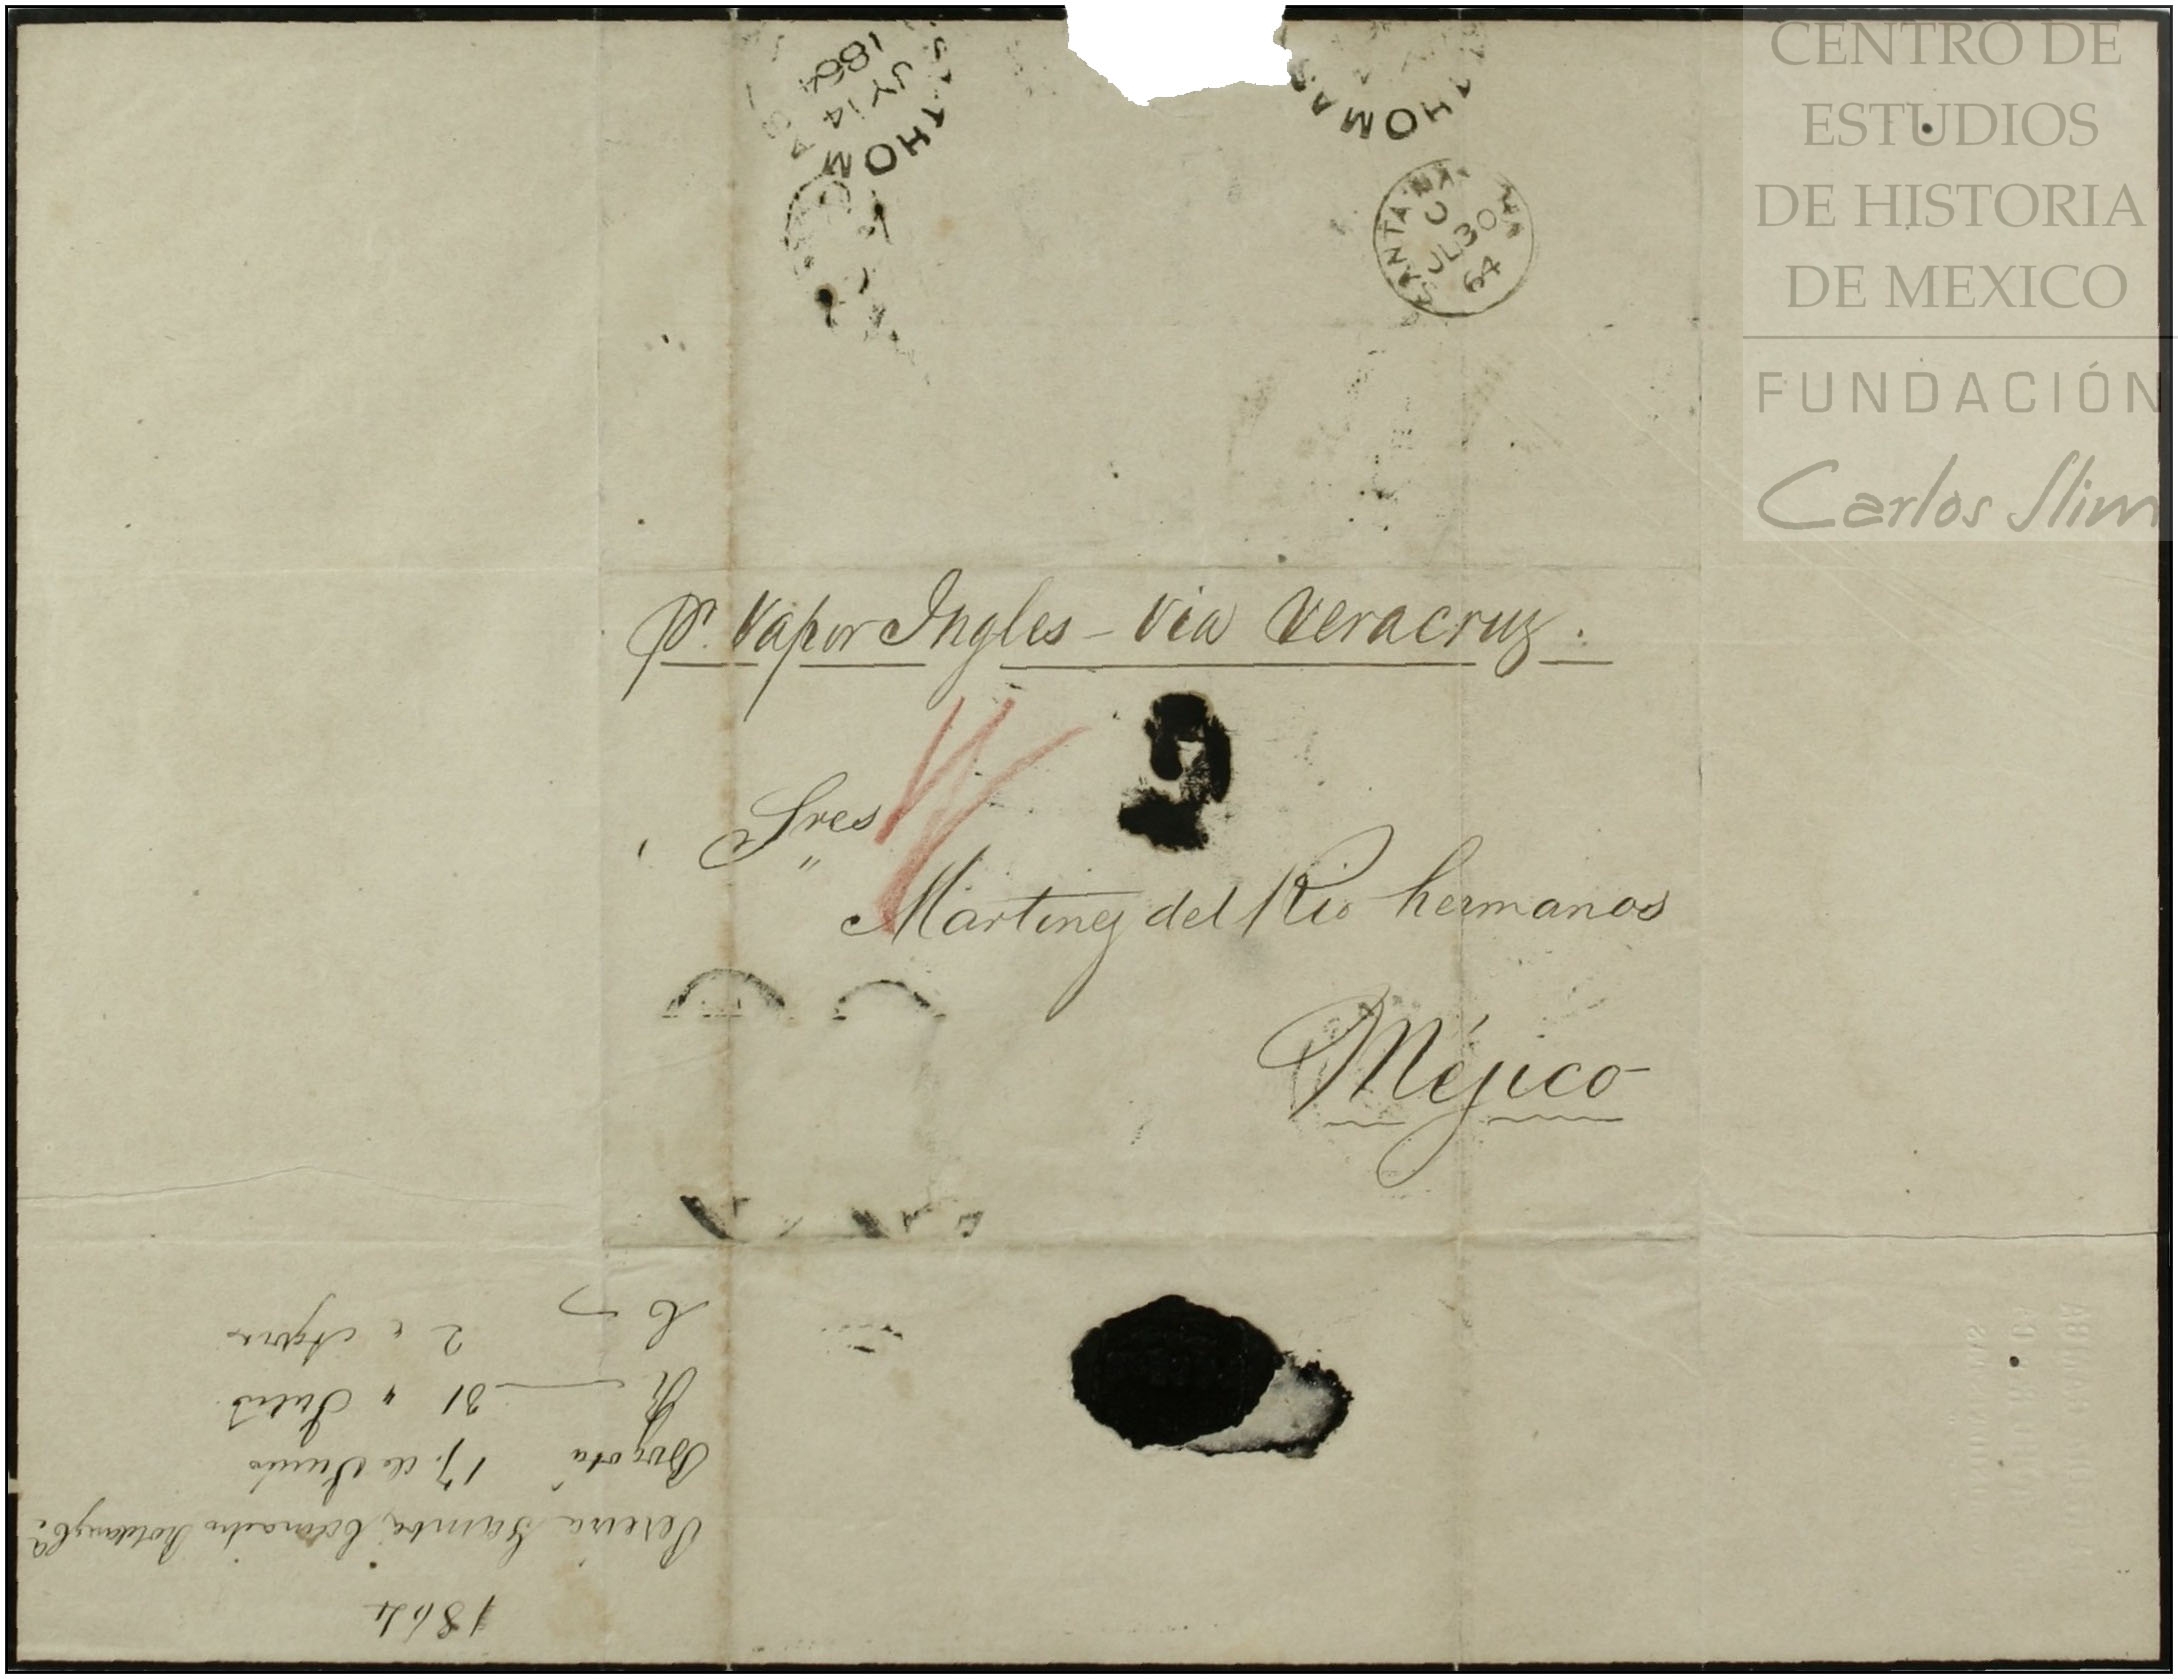 CENTRO DE
ESTUDIOS
DE HISTORIA
DE MEXICO
FUNDACIÓN
Carlos Slim
ST THOMAS
JY 14
1864
THOMAS
SANTA MARTHA
C
JL 30
64
pr. Vapor Ingles – Via Veracruz.
Sres
Martinez del Rio hermanos
Méjico
1864
Pereira Gamba, Camacho Roldan y Ca.
Bogotá 17. de Junio
R 31 " Julio
C 2 " Agosto